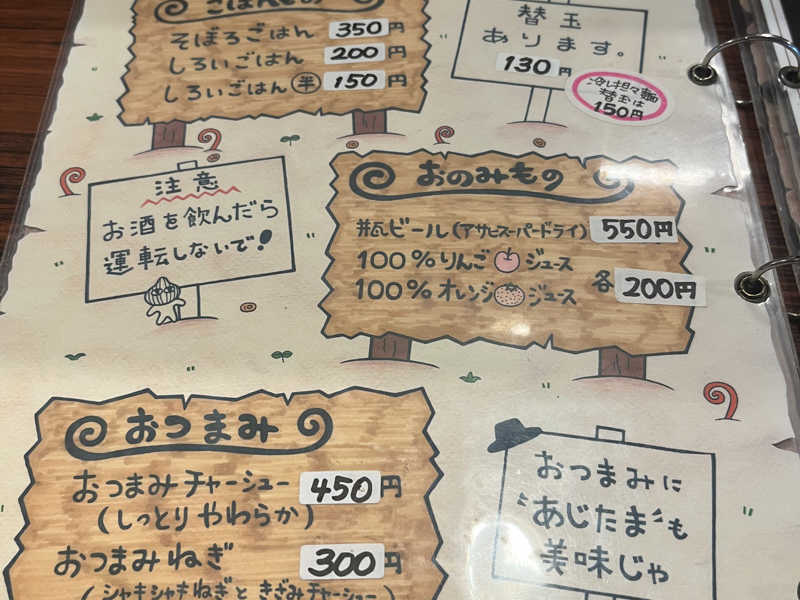 ごはんもの
そぼろごはん 350円
しろいごはん 200円
しろいごはん 半 150円
替玉
あります。
130円
冷し担々麺
替玉は
150円
注意
お酒を飲んだら
運転しないで!
おのみもの
瓶ビール(アサヒスーパードライ) 550円
100%りんごジュース
100%オレンジジュース 各200円
おつまみ
おつまみチャーシュー 450円
(しっとりやわらか)
おつまみねぎ 300円
(シャキシャキねぎときざみチャーシュー)
おつまみに
"あじたま"も
美味じゃ